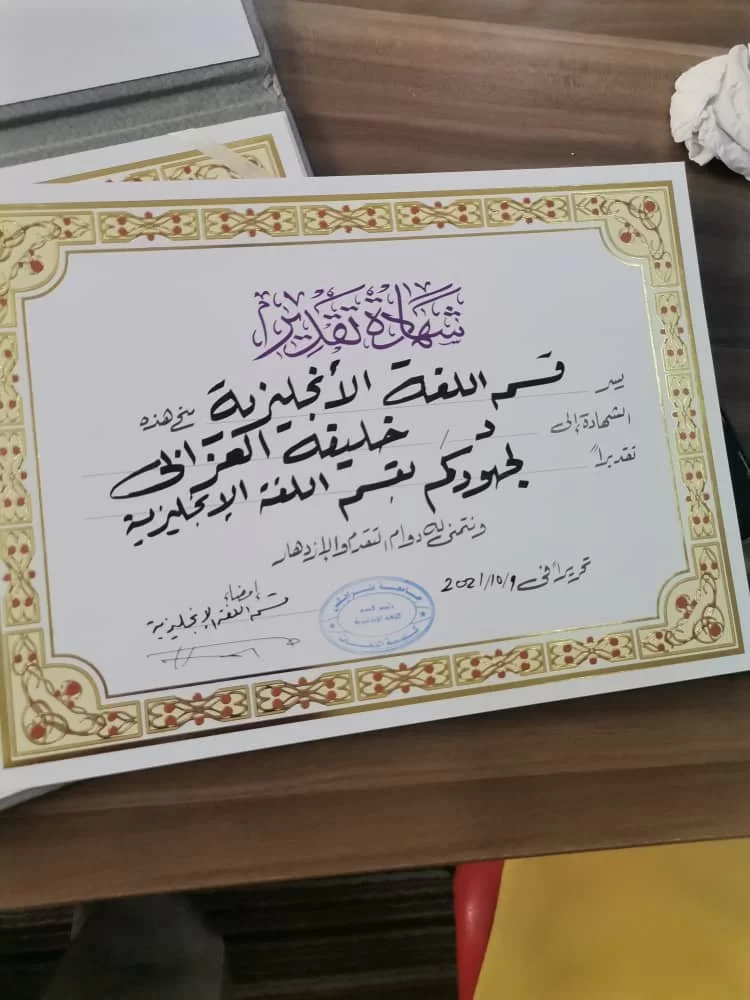 شهادة تقدير
يسر قسم اللغة الأنجليزية منح هذه
الشهادة إلى د/ خليفة العزابى
تقديراً لجهودكم بقسم اللغة الإنجليزية
ونتمنى له دوام التقدم والإزدهار
تحريراً فى 2021/10/9
إمضاء
قسم اللغة الإنجليزية